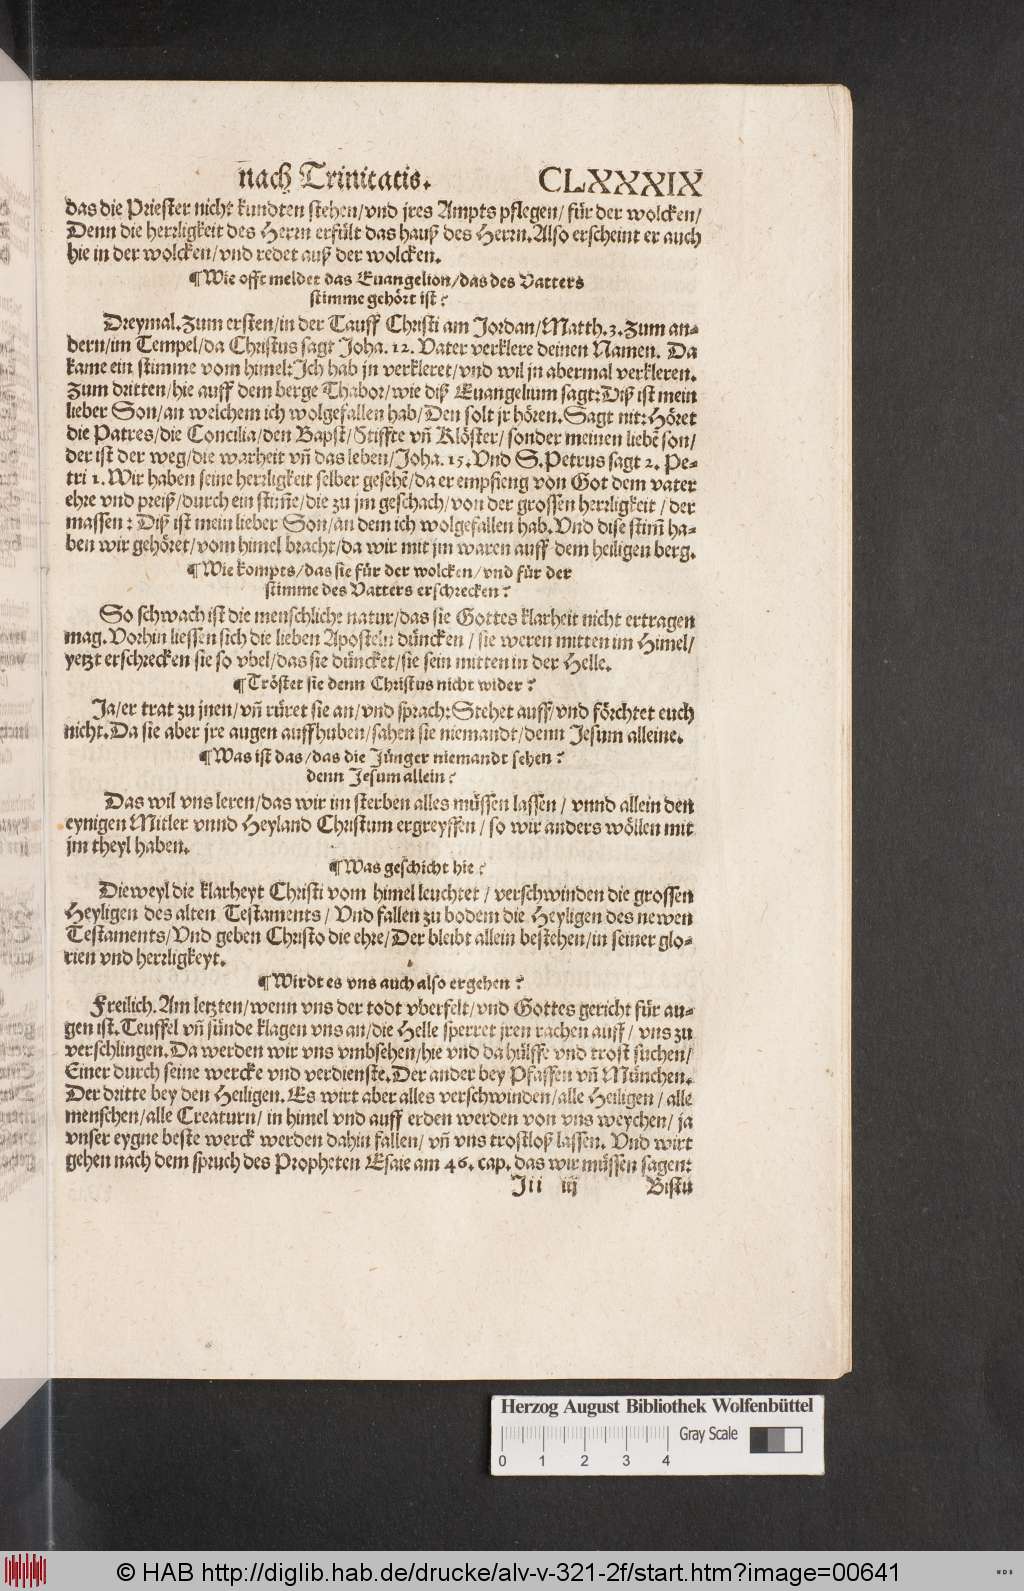 nach Trinitatis. CLXXXIX
das die Priester nicht kundten stehen/vnd jres Ampts pflegen/ für der wolcken/
Denn die herrligkeit des Herrn erfült das hauß des Herrn. Also erscheint er auch
hie in der wolcken/vnd redet auß der wolcken.
¶ Wie offt meldet das Euangelion/das des Vatters
stimme gehört ist?
Dreymal. Zum ersten/in der Tauff Christi am Jordan/Matth. 3. Zum an-
dern/im Tempel/da Christus sagt Joha. 12. Vater verklere deinen Namen. Da
kame ein stimme vom himel: Ich hab jn verkleret/vnd wil jn abermal verkleren.
Zum dritten/hie auff dem berge Thabor/wie diß Euangelium sagt: Diß ist mein
lieber Son/an welchem ich wolgefallen hab/Den solt jr hören. Sagt nit: Höret
die Patres/die Concilia/den Bapst/Stiffte vñ Klöster/sonder meinen liebẽ son/
der ist der weg/die warheit vñ das leben/Joha. 15. Vnd S. Petrus sagt 2. Pe-
tri 1. Wir haben seine herrligkeit selber gesehẽ/da er empfieng von Got dem vater
ehre vnd preiß/durch ein stim̃e/die zu jm geschach/von der grossen herrligkeit / der
massen: Diß ist mein lieber Son/an dem ich wolgefallen hab. Vnd dise stim̃ ha-
ben wir gehöret/vom himel bracht/da wir mit jm waren auff dem heiligen berg.
¶ Wie kompts/das sie für der wolcken/vnd für der
stimme des Vatters erschrecken?
So schwach ist die menschliche natur/das sie Gottes klarheit nicht ertragen
mag. Vorhin liessen sich die lieben Aposteln düncken / sie weren mitten im Himel/
yetzt erschrecken sie so vbel/das sie düncket/sie sein mitten in der Helle.
¶ Tröstet sie denn Christus nicht wider?
Ja/er trat zu jnen/vñ rüret sie an/vnd sprach: Stehet auff/vnd förchtet euch
nicht. Da sie aber jre augen auffhuben/sahen sie niemandt/denn Jesum alleine.
¶ Was ist das/das die Jünger niemandt sehen?
denn Jesum allein?
Das wil vns leren/das wir im sterben alles müssen lassen / vnnd allein den
eynigen Mitler vnnd Heyland Christum ergreyffen / so wir anders wöllen mit
jm theyl haben.
¶ Was geschicht hie?
Dieweyl die klarheyt Christi vom himel leuchtet / verschwinden die grossen
Heyligen des alten Testaments / Vnd fallen zu bodem die Heyligen des newen
Testaments/Vnd geben Christo die ehre/Der bleibt allein bestehen/in seiner glo-
rien vnd herrligkeyt.
¶ Wirdt es vns auch also ergehen?
Freilich. Am letzten/wenn vns der todt vberfelt/vnd Gottes gericht für au-
gen ist. Teuffel vñ sünde klagen vns an/die Helle sperret jren rachen auff/ vns zu
verschlingen. Da werden wir vns vmbsehen/hie vnd da hülffe vnd trost suchen/
Einer durch seine wercke vnd verdienste. Der ander bey Pfaffen vñ München.
Der dritte bey den Heiligen. Es wirt aber alles verschwinden/alle Heiligen / alle
menschen/alle Creaturn/ in himel vnd auff erden werden von vns weychen/ ja
vnser eygne beste werck werden dahin fallen/ vñ vns trostloß lassen. Vnd wirt
gehen nach dem spruch des Propheten Esaie am 46. cap. das wir müssen sagen:
Jii iij Bistu
Herzog August Bibliothek Wolfenbüttel
Gray Scale
0 1 2 3 4
© HAB http://diglib.hab.de/drucke/alv-v-321-2f/start.htm?image=00641